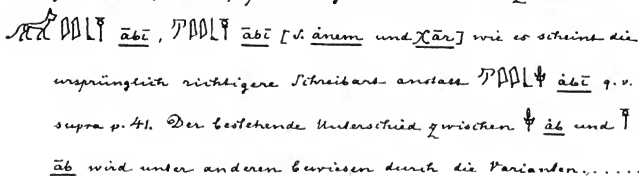 ābī, ābī [s. ånem und χār] wie es scheint die
ursprünglich richtigere Schreibart anstatt åbī q. v.
supra p. 41. Der bestehende Unterschied zwischen åb und
āb wird unter anderen bewiesen durch die Varianten......